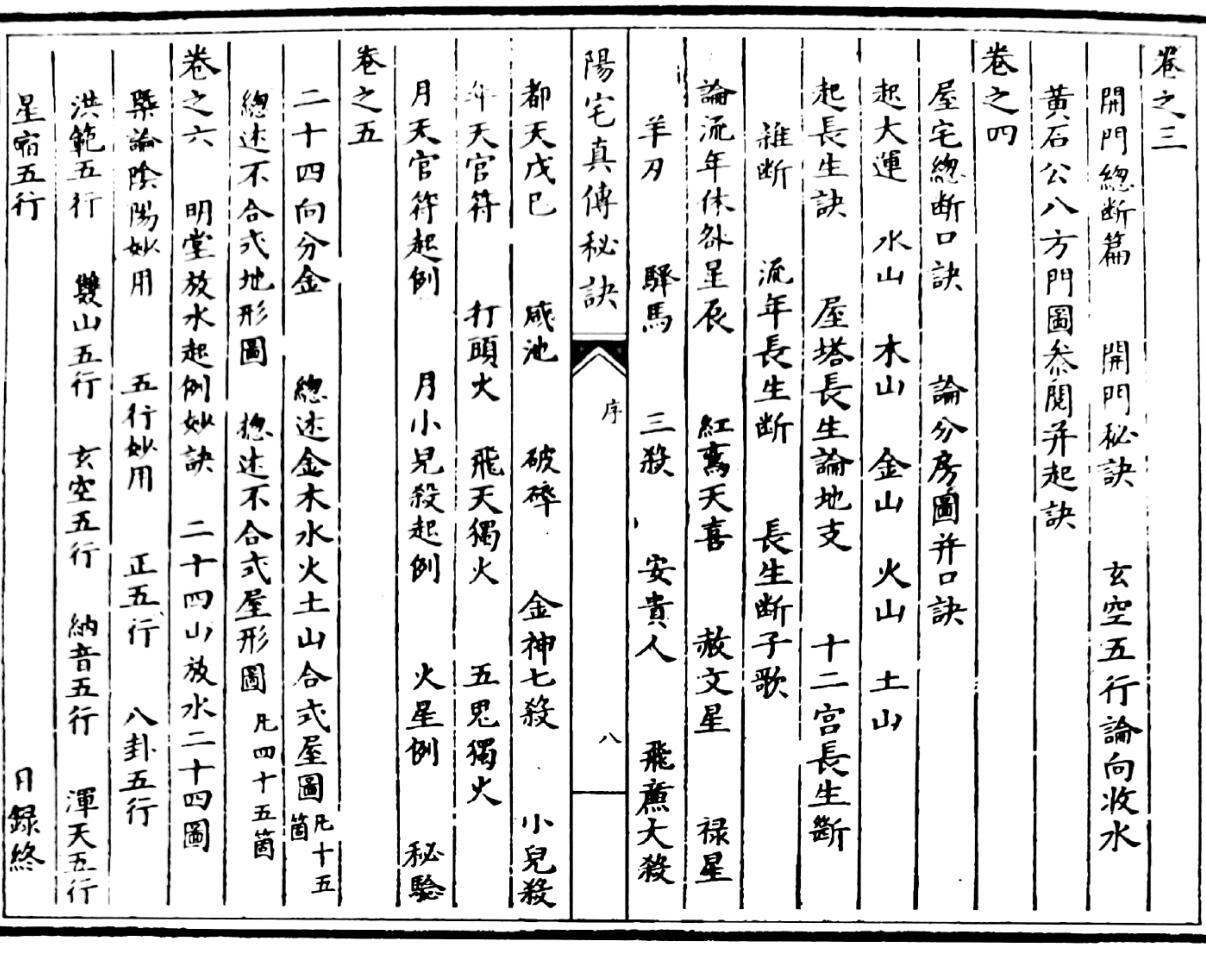 卷之三
開門總斷篇　開門秘訣　玄空五行論向收水
黃石公八方門圖叅閱并起訣
卷之四
屋宅總斷口訣　論分房圖并口訣
起大運　水山　木山　金山　火山　土山
起長生訣　屋塔長生論地支　十二宮長生斷
雜斷　流年長生斷　長生斷子歌
論流年休咎星辰　紅鸞天喜　赦文星　禄星
羊刃　驛馬　三殺　安貴人　飛廉大殺
陽宅真傳秘訣　序　八
都天戊巳　咸池　破碎　金神七殺　小兒殺
年天官符　打頭火　飛天獨火　五鬼獨火
月天官符起例　月小兒殺起例　火星例　秘驗
卷之五
二十四向分金　總述金木水火土山合式屋圖凡十五箇
總述不合式地形圖　總述不合式屋形圖凡四十五箇
卷之六　明堂放水起例妙訣　二十四山放水二十四圖
槩論陰陽妙用　五行妙用　正五行　八卦五行
洪範五行　雙山五行　玄空五行　納音五行　渾天五行
星宿五行　目録終